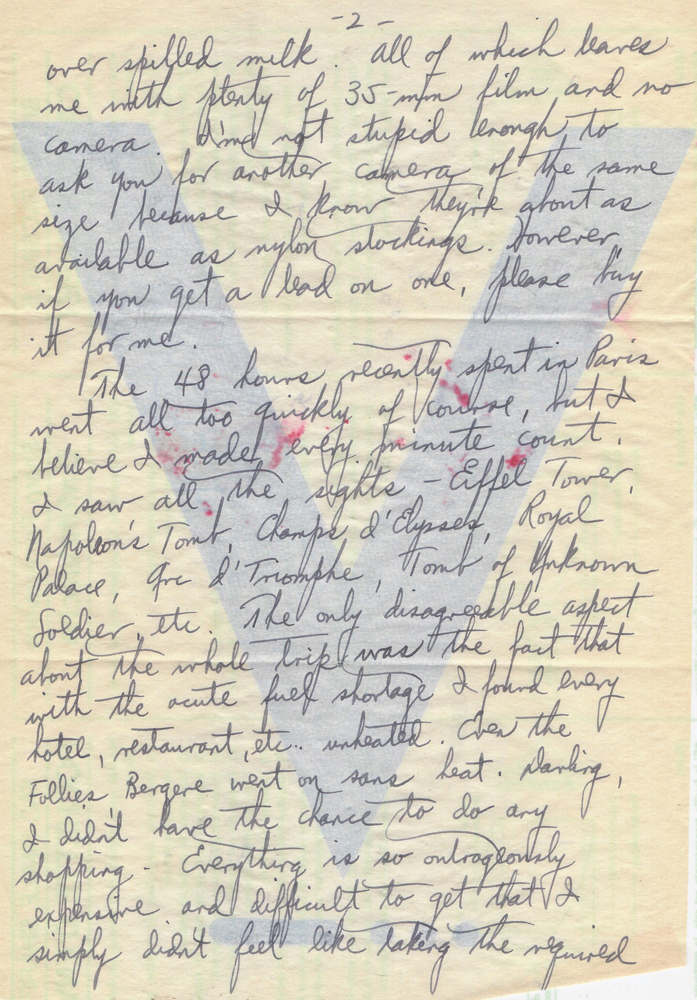 -2-
over spilled milk. All of which leaves
me with plenty of 35-mm film and no
camera. I'm not stupid enough to
ask you for another camera of the same
size because I know they're about as
available as nylon stockings. However
if you get a lead on one, please buy
it for me.
The 48 hours recently spent in Paris
went all too quickly of course, but I
believe I made every minute count.
I saw all the sights - Eiffel Tower,
Napoleon's Tomb, Champs d'Elysses, Royal
Palace, Arc d'Triomphe, Tomb of Unknown
Soldier, etc. The only disagreeable aspect
about the whole trip was the fact that
with the acute fuel shortage I found every
hotel, restaurant, etc.. unheated. Even the
Follies Bergere went on sans heat. Darling,
I didn't have the chance to do any
shopping - Everything is so outrageously
expensive and difficult to get that I
simply didn't feel like taking the required